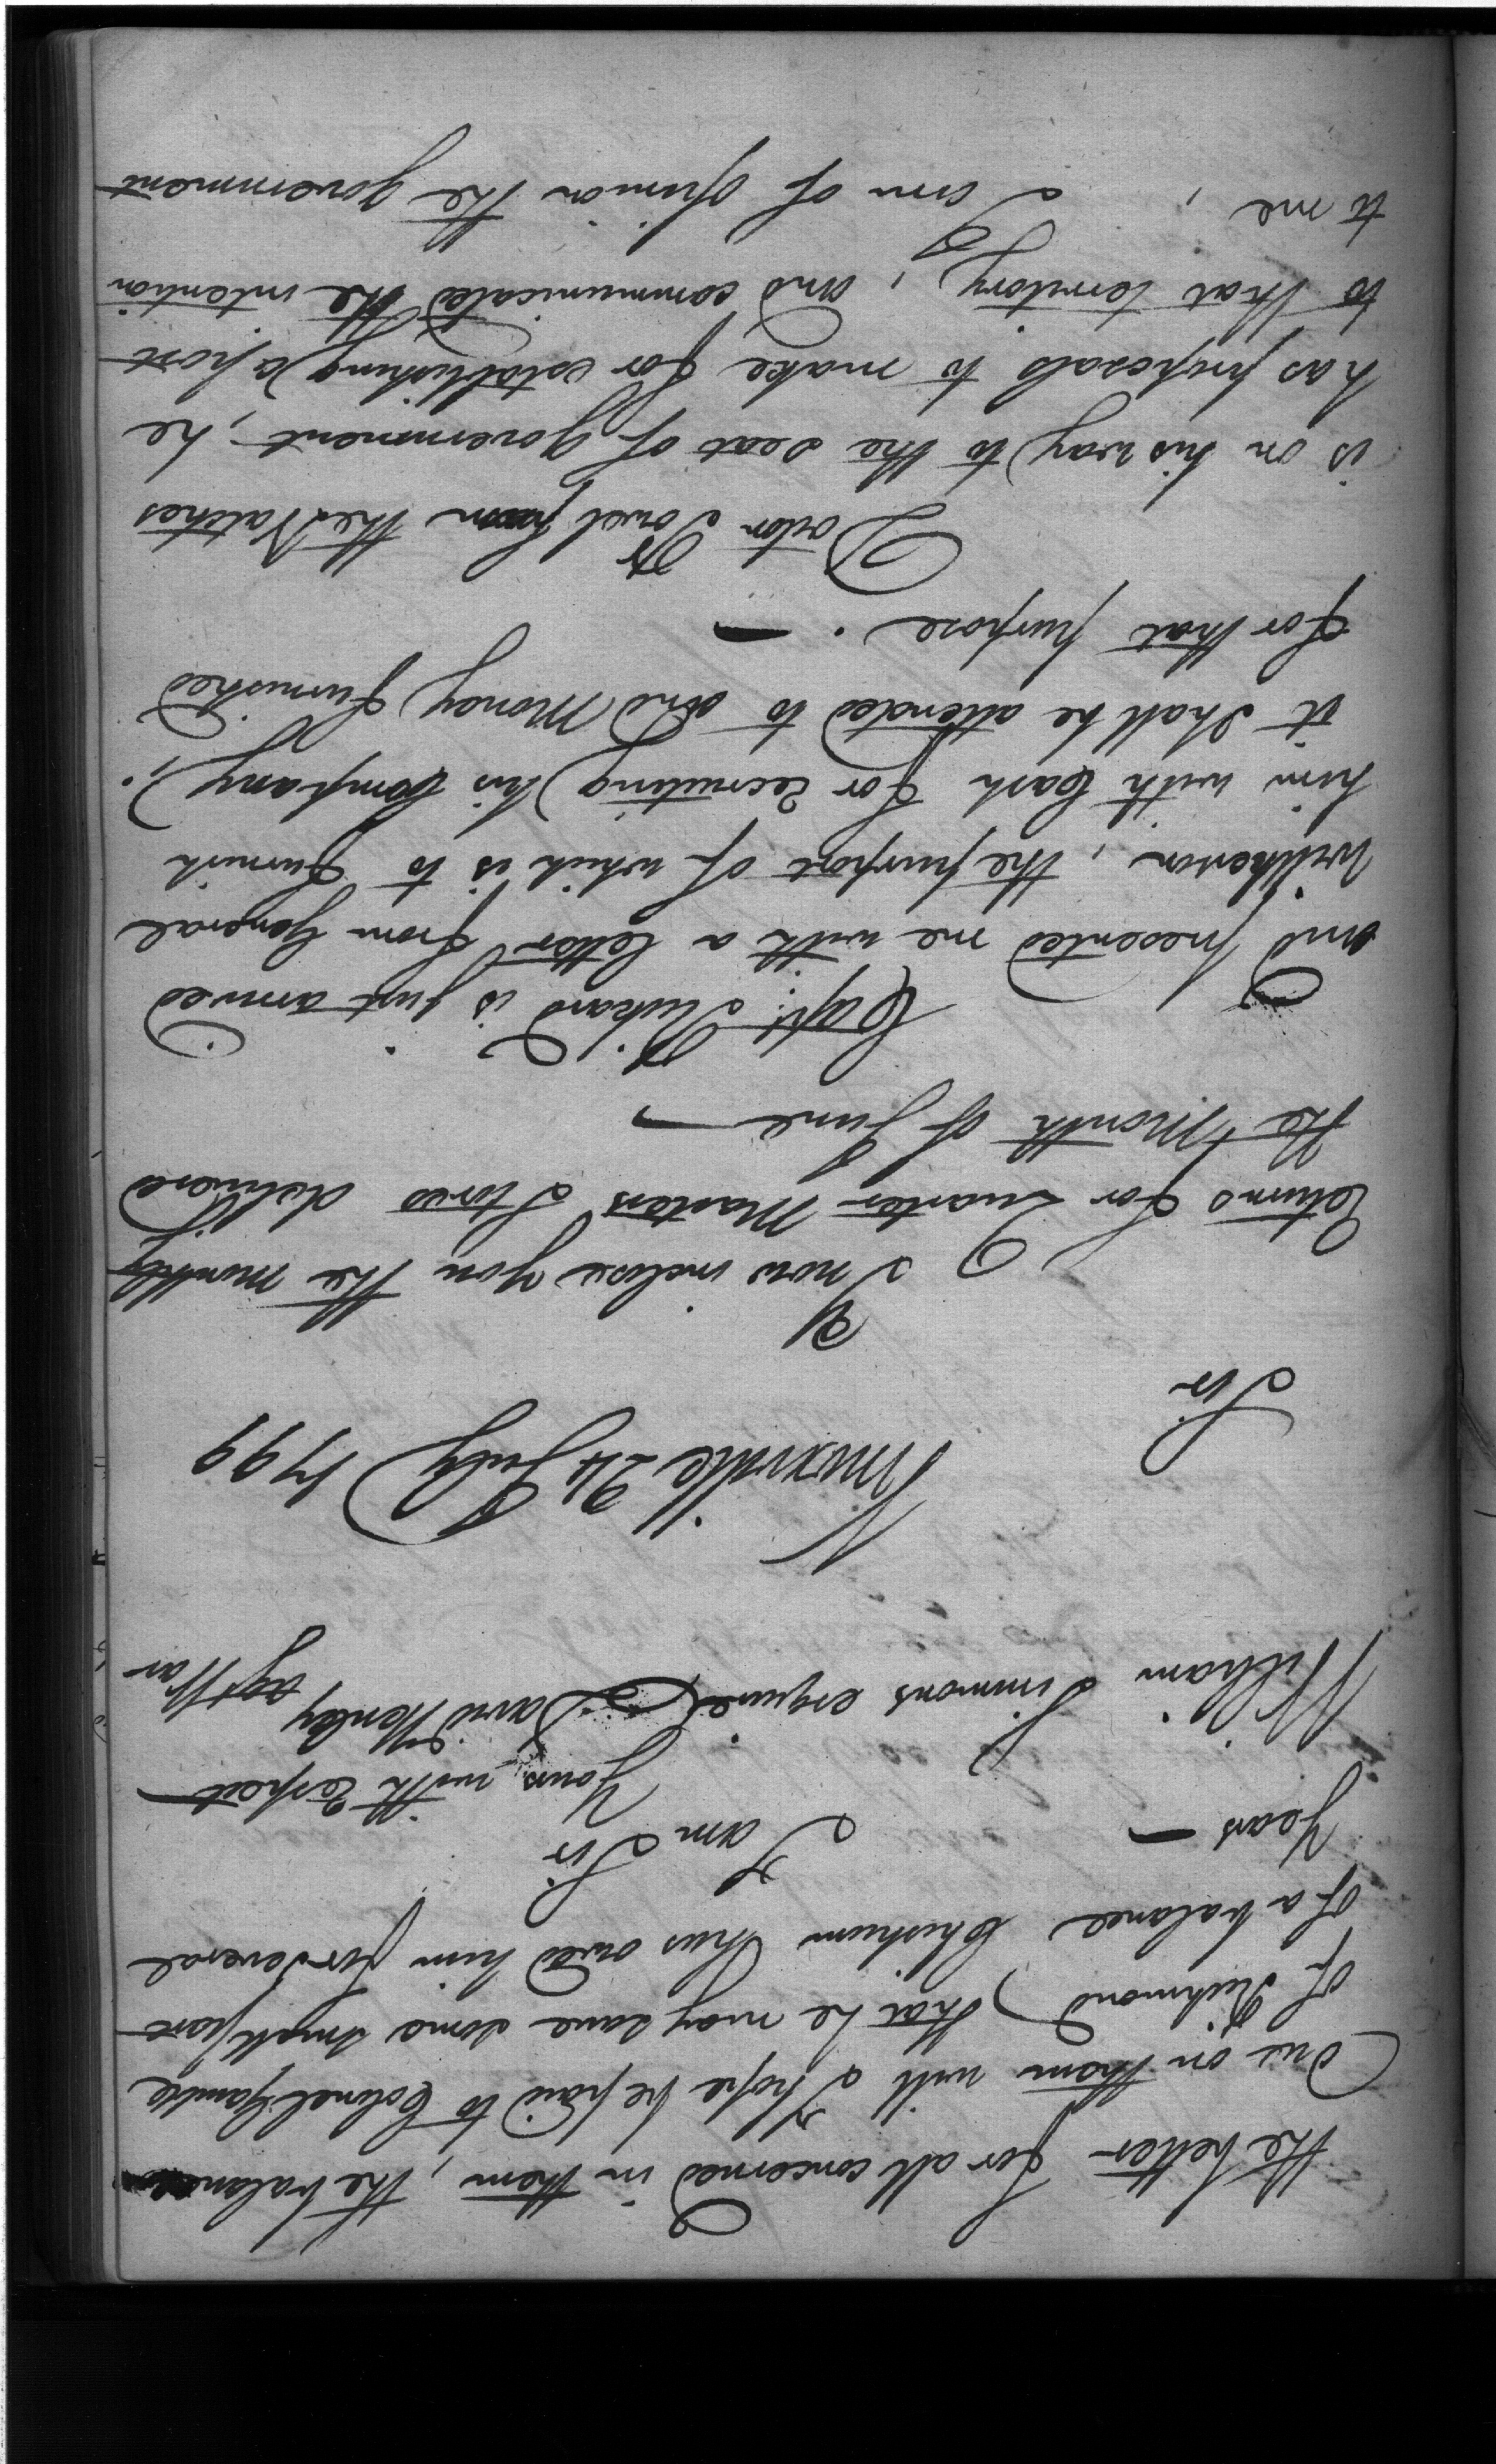 the better for all concerned in them, the balance
due on them will I hope be paid to Colonel Gamble
of Richmond that he may save some small part
of a balance Chisholm has owed him for several
Years —
I am Sir
Yours with respect
William Simmons esquire David Henley agt War
Knoxville 24 July 1799
Sir
I now inclose you the monthly
returns for Quarter Masters Stores delivered
the Month of June —
Capt. Rickard is just arrived
and presented me with a letter from General
Wilkinson, the purport of which is to furnish
him with Cash for recruiting his Company,
it shall be attended to and Money furnished
for that purpose. —
Doctor from the Natches
is on his way to the seat of government, he
has proposals to make for establishing a post
to that territory, and communicated the intention
to me, I am of opinion the government